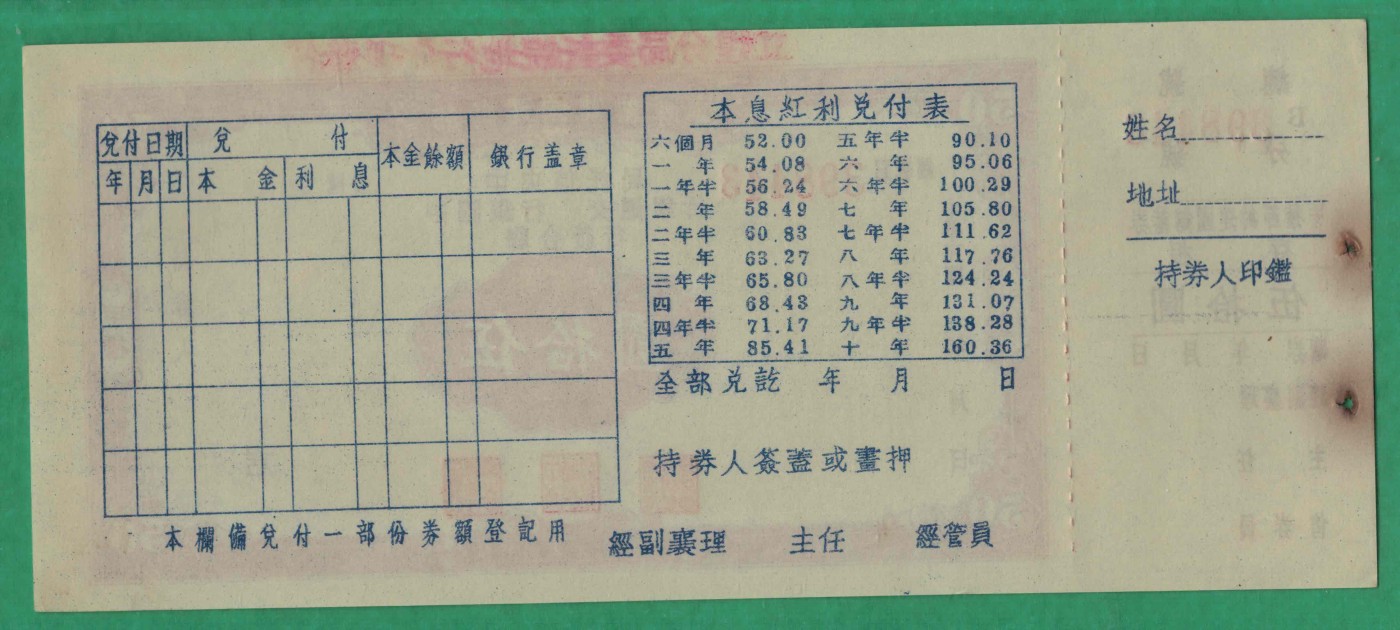 兌付日期 兌付 本金餘額 銀行盖章
年 月 日 本金 利息
本欄備兌付一部份券額登記用
本息紅利兌付表
六個月 52.00 五年半 90.10
一年 54.08 六年 95.06
一年半 56.24 六年半 100.29
二年 58.49 七年 105.80
二年半 60.83 七年半 111.62
三年 63.27 八年 117.76
三年半 65.80 八年半 124.24
四年 68.43 九年 131.07
四年半 71.17 九年半 138.28
五年 85.41 十年 160.36
全部兌訖 年 月 日
持券人簽蓋或畫押
經副襄理 主任 經管員
姓名
地址
持券人印鑑